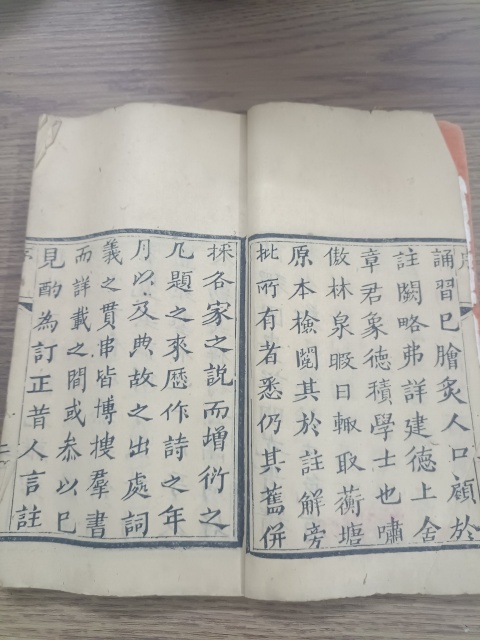 誦習已膾炙人口顧於
註闕略弗詳建德上舍
章君象德積學士也嘯
傲林泉暇日輙取蘅塘
原本檢閱其於註解旁
批所有者悉仍其舊併
採各家之說而增衍之
凡題之來歷作詩之年
月以及典故之出處詞
義之貫串皆博搜羣書
而詳載之間或叅以已
見酌為訂正昔人言註